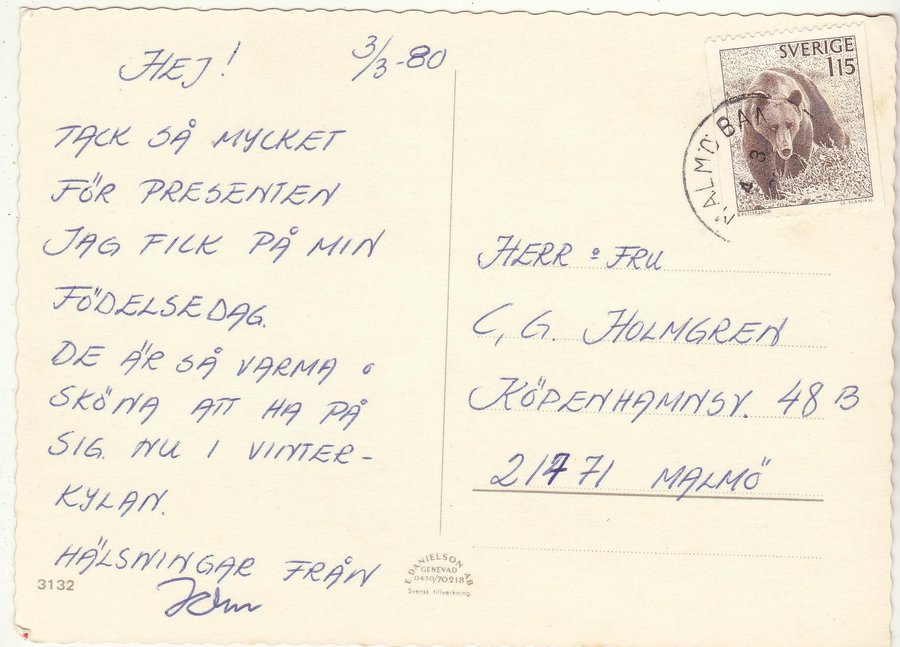 HEJ! 3/3-80
TACK SÅ MYCKET
FÖR PRESENTEN
JAG FICK PÅ MIN
FÖDELSEDAG.
DE ÄR SÅ VARMA o
SKÖNA ATT HA PÅ
SIG NU I VINTER-
KYLAN.
HÄLSNINGAR FRÅN
3132
SVERIGE
1 15
MALMÖ BAN
4 3
HERR o FRU
C, G. HOLMGREN
KÖPENHAMNSV. 48 B
217 71 MALMÖ
E DANIELSON AB
GENEVAD
0430/70218
Svensk tillverkning.